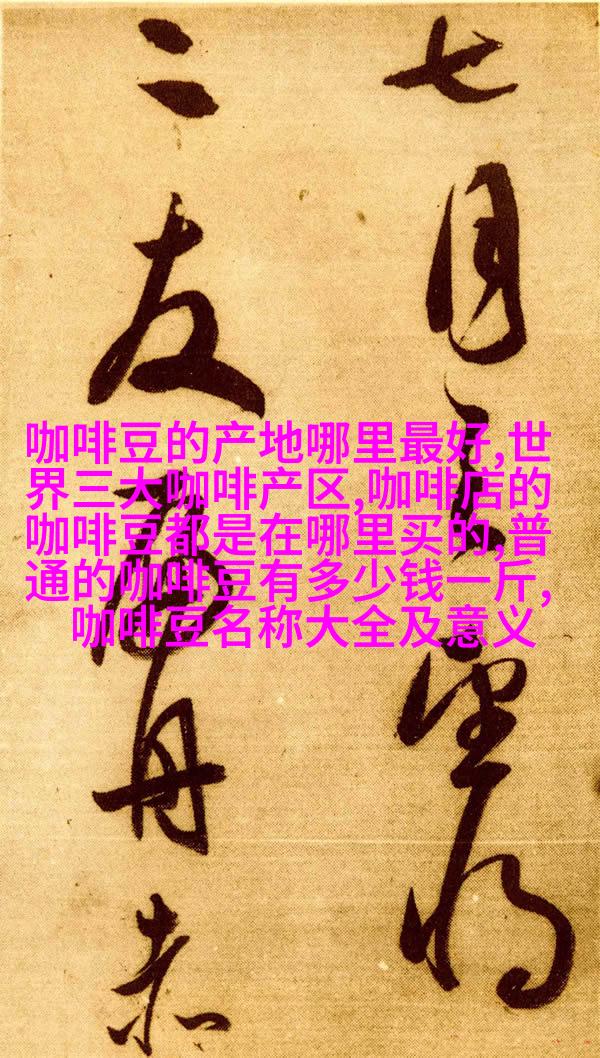 咖啡豆的产地哪里最好,世
界三大咖啡产区,咖啡店的
咖啡豆都是在哪里买的,普
通的咖啡豆有多少钱一斤,
咖啡豆名称大全及意义
七月之望将
二友舟赤